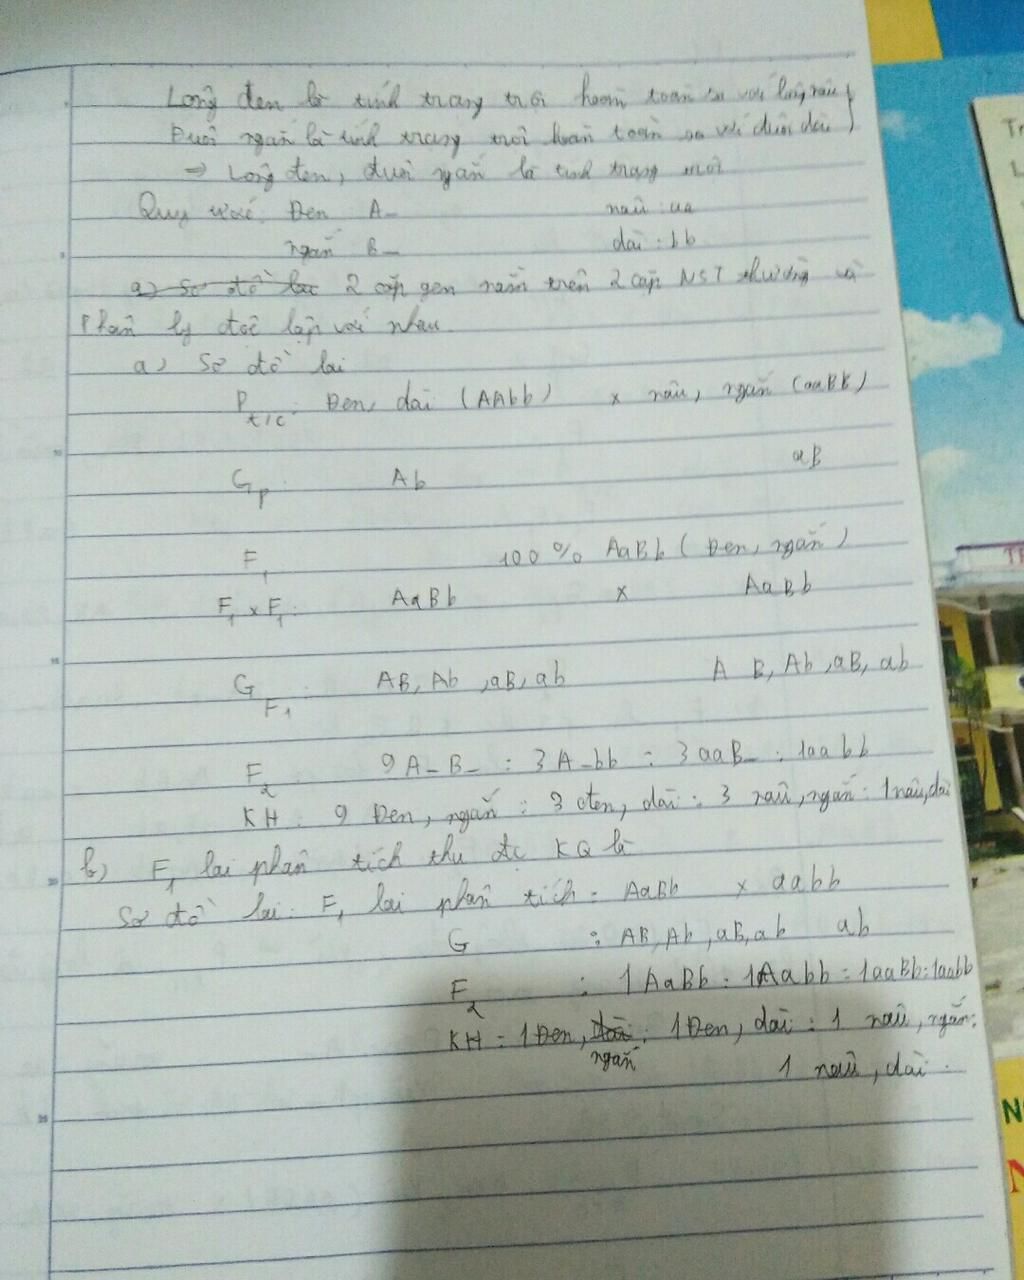 Lông đen là tính trạng trội hoàn toàn so với lông nâu }
Đuôi ngắn là tính trạng trội hoàn toàn so với đuôi dài }
=> Lông đen, đuôi ngắn là tính trạng trội
Quy ước: Đen A_ nâu : aa
ngắn B_ dài : bb
a) Sơ đồ lai 2 cặp gen nằm trên 2 cặp NST thường và
Phân ly độc lập với nhau.
a) Sơ đồ lai
P t/c : Đen, dài (AAbb) x nâu, ngắn (aaBB)
Gp : Ab aB
F1 100% AaBb (Đen, ngắn)
F1 x F1 : AaBb x AaBb
G F1 : AB, Ab, aB, ab AB, Ab, aB, ab
F2 9A_B_ : 3A_bb : 3aaB_ : 1aabb
KH : 9 Đen, ngắn : 3 đen, dài : 3 nâu, ngắn : 1 nâu, dài
b) F1 lai phân tích thu đc KQ là
Sơ đồ lai : F1 lai phân tích : AaBb x aabb
G : AB, Ab, aB, ab ab
F2 : 1AaBb : 1Aabb : 1aaBb : 1aabb
KH : 1 Đen, dài : 1 Đen, dài : 1 nâu, ngắn :
ngắn 1 nâu, dài.
Tr
L
TR
N
N